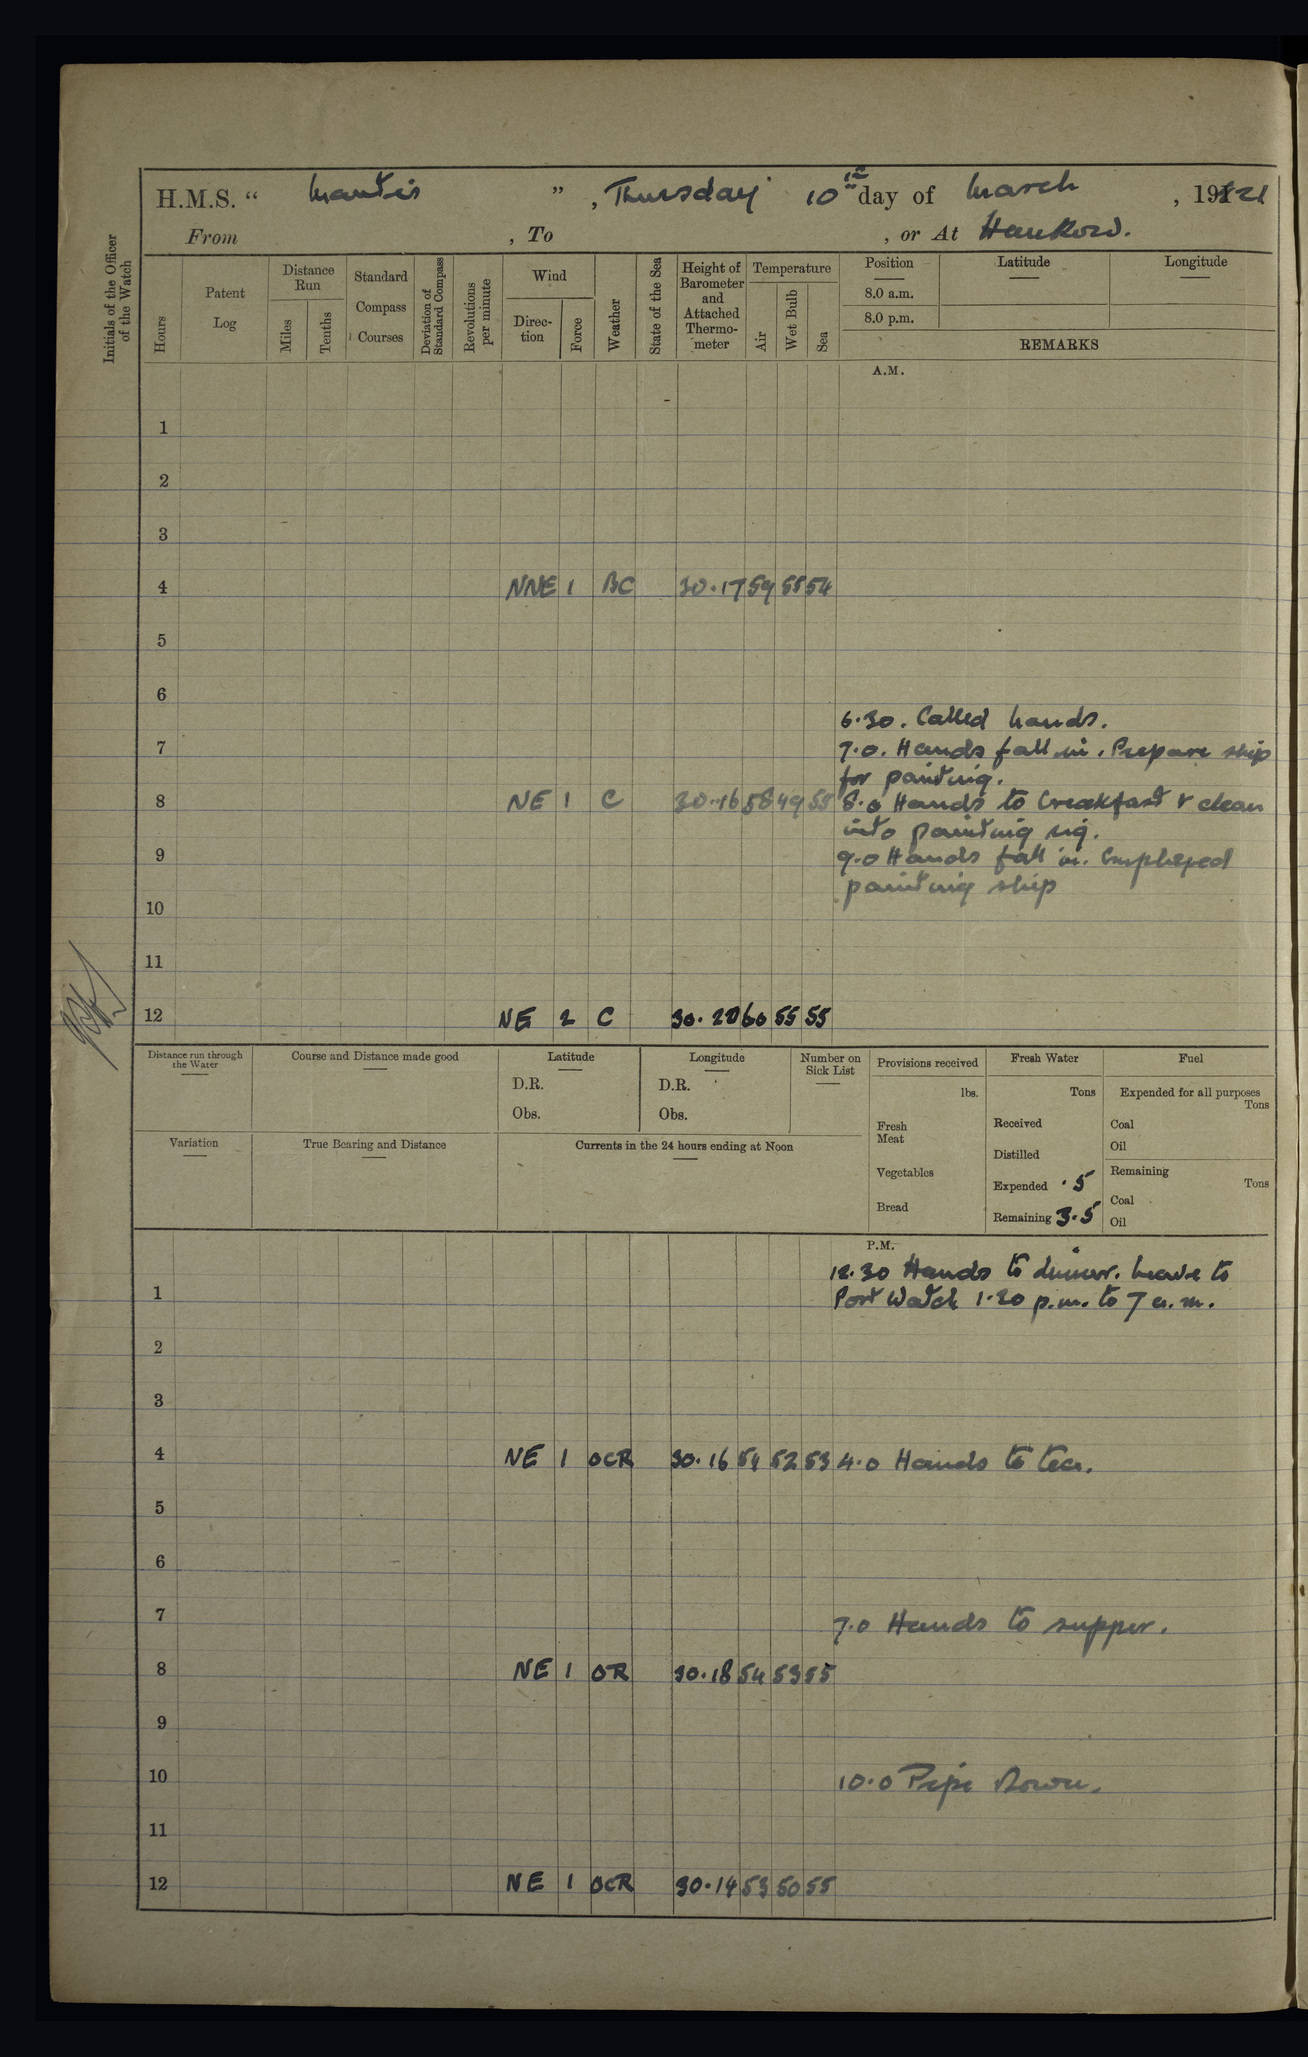 H.M.S. “ Mantis ”, Thursday 10th day of March, 1921
From , To , or At Hankow.
Initials of the Officer of the Watch
Hours
Patent Log
Distance Run
Miles
Tenths
Standard Compass Courses
Deviation of Standard Compass
Revolutions per minute
Wind
Direction
Force
Weather
State of the Sea
Height of Barometer and Attached Thermometer
Temperature
Air
Wet Bulb
Sea
Position
8.0 a.m.
8.0 p.m.
Latitude
Longitude
REMARKS
A.M.
1
2
3
4 NNE 1 BC 30.17 59 55 54
5
6
6.30. Called hands.
7 7.0. Hands fall in. Prepare ship
for painting.
8 NE 1 C 30.16 58 49 55 8.0 Hands to breakfast & clean
into painting rig.
9 9.0 Hands fall in. Employed
painting ship
10
11
12 NE 2 C 30.20 60 55 55
Distance run through the Water
Course and Distance made good
Latitude
D.R.
Obs.
Longitude
D.R.
Obs.
Number on Sick List
Provisions received
lbs.
Fresh Meat
Vegetables
Bread
Fresh Water
Tons
Received
Distilled
Expended .5
Remaining 3.5
Fuel
Expended for all purposes
Tons
Coal
Oil
Remaining
Tons
Coal
Oil
Variation
True Bearing and Distance
Currents in the 24 hours ending at Noon
P.M.
12.30 Hands to dinner. Leave to
1 Port Watch 1.30 p.m. to 7 a.m.
2
3
4 NE 1 OCR 30.16 54 52 53 4.0 Hands to tea.
5
6
7 7.0 Hands to supper.
8 NE 1 OR 30.18 54 53 55
9
10 10.0 Pipe Down.
11
12 NE 1 OCR 30.14 53 50 55